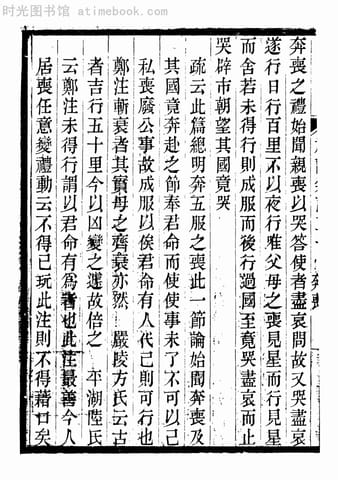 时光图书馆 atimebook.com
奔喪之禮始聞親喪以哭答使者盡哀問故又哭盡哀
遂行日行百里不以夜行唯父母之喪見星而行見星
而舍若未得行則成服而後行過國至竟哭盡哀而止
哭辟市朝望其國竟哭
疏云此篇總明奔五服之喪此一節論始聞奔喪及
其國竟奔赴之節奉君命而使使事未了不可以己
私喪廢公事故成服以俟君命有人代己則可行也
鄭注斬衰者其實母之齊衰亦然 嚴陵方氏云古
者吉行五十里今以凶變之遽故倍之 平湖陸氏
云鄭注未得行謂以君命有為者也此注最善今人
居喪任意變禮動云不得已玩此注則不得藉口矣